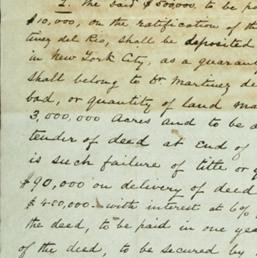 2. The said $500000, to be pa
$10,000, on the ratification of th
tinez del Rio, shall be deposited
in New York City, as a guaran
shall belong to Dr Martinez de
bad, or quantity of land ma
3,000,000 Acres and to be a
tender of deed at End of
is such failure of title or q
$90,000 on delivery of deed
$400,000 with interest at 6%
the deed, to be paid in one yea
of the deed, to be secured by